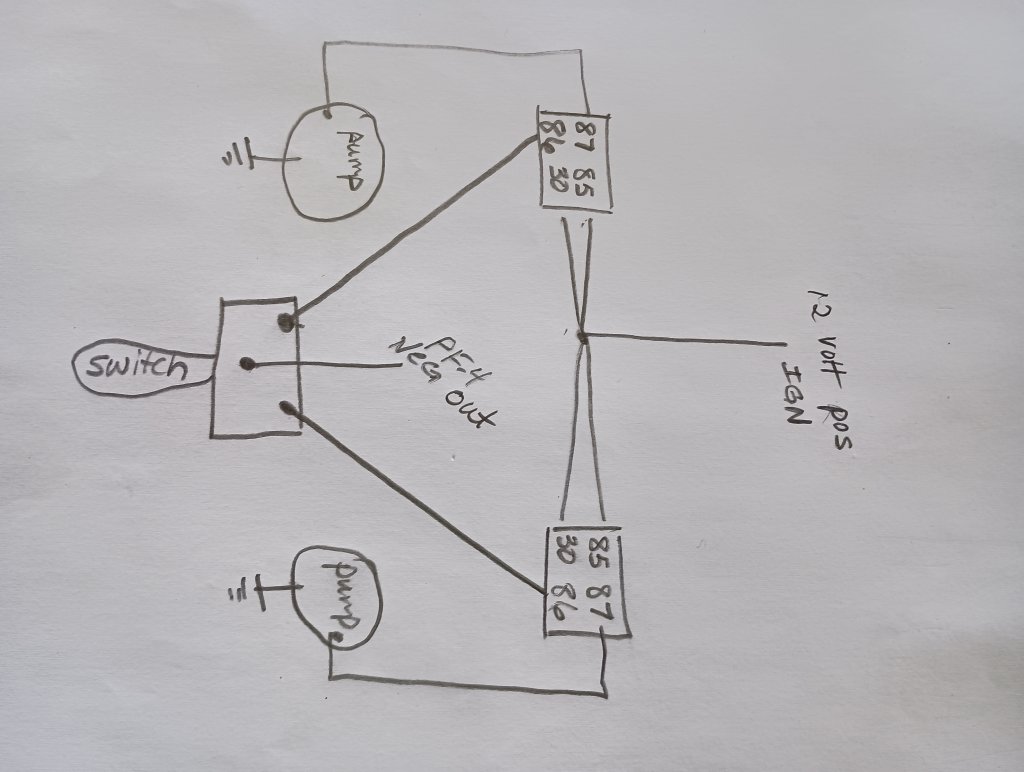 Pump
87 85
86 30
12 volt pos
IGN
switch
PF-4
Neg out
85 87
30 86
pump